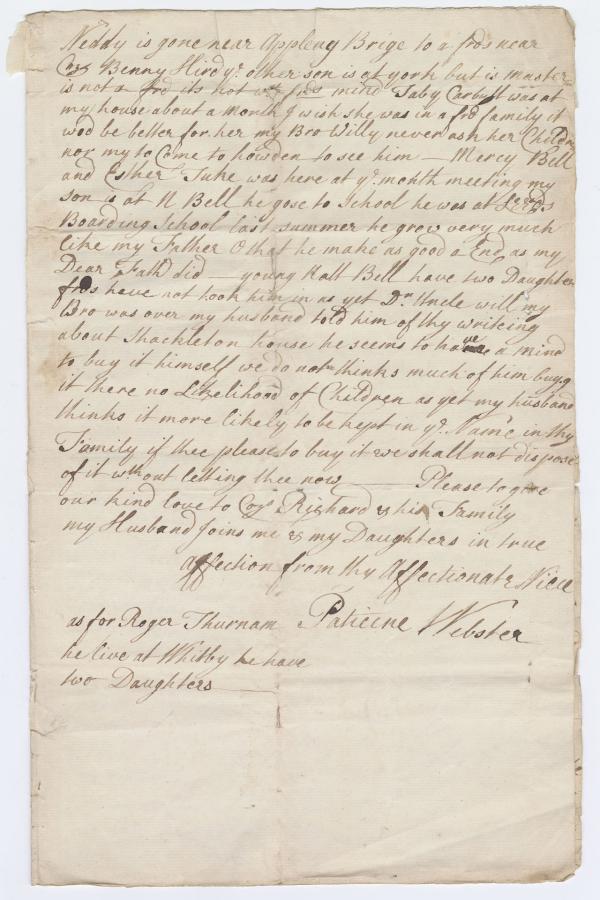 Neddy is gone near Appleng Brige to a frds near
Coz Benny Hird yr. other son is at york but is Master
is not a frd its not wth frds mind Taby Carbutt was at
my house about a Month I wish she was in a frd family it
wod be better for her my Bro Willy never ask her Childn
nor my to Come to howden to see him — Mercy Bell
and Esther Tuke was here at yr. month meeting my
son is at N Bell he gose to School he was at Leeds
Boarding School last summer he grow very much
like my Father O that he make as good a End as my
Dear Fathr did — young Natt Bell have two Daughters
frds have not took him in as yet Dr. Uncle will my
Bro was over my husband told him of thy writeing
about Shackleton house he seems to have a mind
to buy it himself we do not thinks much of him buyg
it there no Likelihood of Children as yet my husband
thinks it more likely to be kept in yr. Name in thy
Family if thee please to buy it we shall not dispose
of it wthout letting thee now — Please to give
our kind love to Coz Richard & his Family
my Husband Joins me & my Daughters in true
affection from thy Affectionate Niece
Patiene Webster
as for Roger Thurnam
he live at Whitby he have
two Daughters